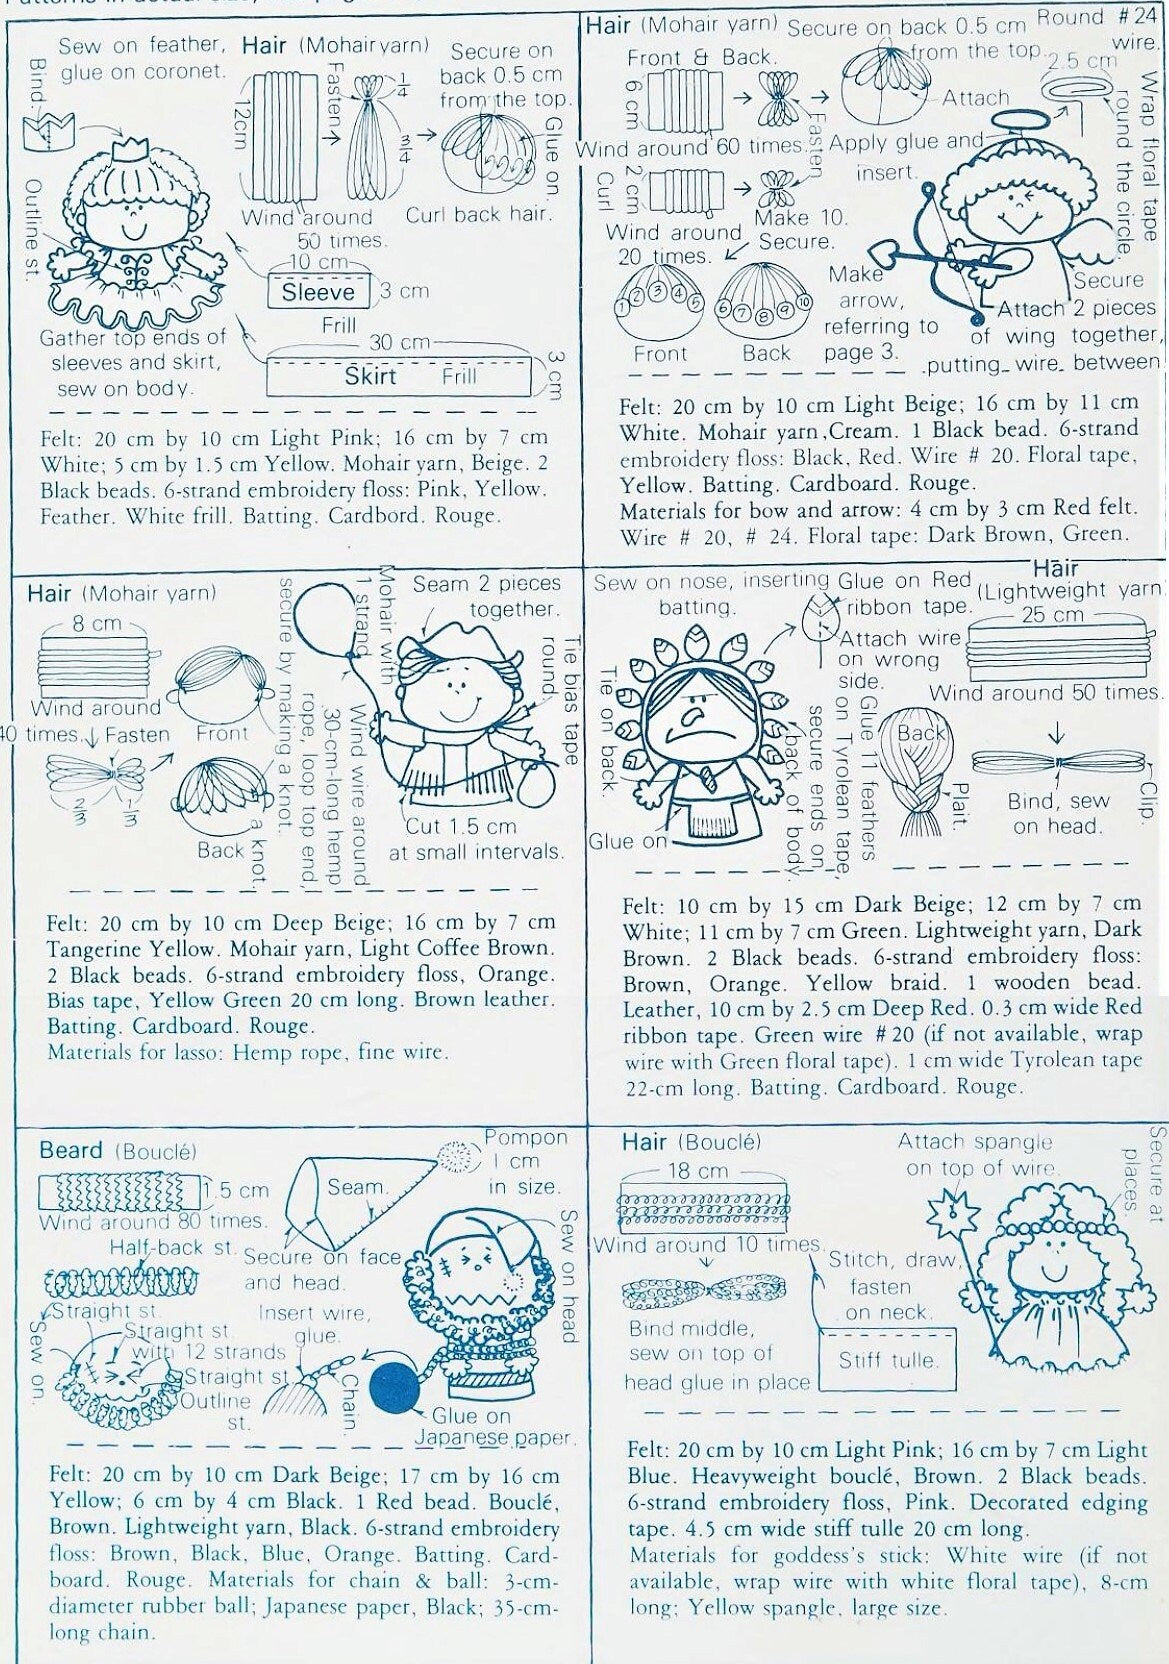 Sew on feather,
glue on coronet.
Bind.
Outline st.
Hair (Mohair yarn)
12cm
Fasten
1/4
3/4
Wind around
50 times.
Secure on
back 0.5 cm
from the top.
Glue on.
Curl back hair.
10 cm
Sleeve
3 cm
Frill
30 cm
Skirt Frill
3 cm
Gather top ends of
sleeves and skirt,
sew on body.
Felt: 20 cm by 10 cm Light Pink; 16 cm by 7 cm
White; 5 cm by 1.5 cm Yellow. Mohair yarn, Beige. 2
Black beads. 6-strand embroidery floss: Pink, Yellow.
Feather. White frill. Batting. Cardbord. Rouge.
Hair (Mohair yarn)
Front & Back.
6 cm
Wind around 60 times.
Fasten
Secure on back 0.5 cm
from the top.
Attach
Round #24
wire.
2.5 cm
Wrap floral tape
round the circle.
Apply glue and
insert.
Curl
2 cm
Make 10.
Wind around
20 times.
Secure.
1 2 3 4 5
Front
6 7 8 9 10
Back
Make
arrow,
referring to
page 3.
Secure
Attach 2 pieces
of wing together,
putting wire between
Felt: 20 cm by 10 cm Light Beige; 16 cm by 11 cm
White. Mohair yarn, Cream. 1 Black bead. 6-strand
embroidery floss: Black, Red. Wire # 20. Floral tape,
Yellow. Batting. Cardboard. Rouge.
Materials for bow and arrow: 4 cm by 3 cm Red felt.
Wire # 20, # 24. Floral tape: Dark Brown, Green.
Hair (Mohair yarn)
8 cm
Wind around
40 times.
Fasten
2/3
1/3
Front
Back
secure by making a knot.
a knot.
Mohair with
1 strand
Wind wire around
30-cm-long hemp
rope, loop top end,
Seam 2 pieces
together.
Tie bias tape
round.
Cut 1.5 cm
at small intervals.
Felt: 20 cm by 10 cm Deep Beige; 16 cm by 7 cm
Tangerine Yellow. Mohair yarn, Light Coffee Brown.
2 Black beads. 6-strand embroidery floss, Orange.
Bias tape, Yellow Green 20 cm long. Brown leather.
Batting. Cardboard. Rouge.
Materials for lasso: Hemp rope, fine wire.
Sew on nose, inserting
batting.
Tie on back.
Glue on
Glue on Red
ribbon tape.
Attach wire
on wrong
side.
Glue 11 feathers
on Tyrolean tape,
secure ends on
back of body.
Hair
(Lightweight yarn
25 cm
Wind around 50 times.
Back
Plait.
Bind, sew
on head.
Clip.
Felt: 10 cm by 15 cm Dark Beige; 12 cm by 7 cm
White; 11 cm by 7 cm Green. Lightweight yarn, Dark
Brown. 2 Black beads. 6-strand embroidery floss:
Brown, Orange. Yellow braid. 1 wooden bead.
Leather, 10 cm by 2.5 cm Deep Red. 0.3 cm wide Red
ribbon tape. Green wire # 20 (if not available, wrap
wire with Green floral tape). 1 cm wide Tyrolean tape
22-cm long. Batting. Cardboard. Rouge.
Beard (Bouclé)
1.5 cm
Wind around 80 times.
Half-back st.
Straight st.
Straight st.
with 12 strands
Straight st.
Outline
st.
Sew on.
Seam.
Pompon
1 cm
in size.
Secure on face
and head.
Insert wire,
glue.
Chain.
Sew on head
Glue on
Japanese paper.
Felt: 20 cm by 10 cm Dark Beige; 17 cm by 16 cm
Yellow; 6 cm by 4 cm Black. 1 Red bead. Bouclé,
Brown. Lightweight yarn, Black. 6-strand embroidery
floss: Brown, Black, Blue, Orange. Batting. Card-
board. Rouge. Materials for chain & ball: 3-cm-
diameter rubber ball; Japanese paper, Black; 35-cm-
long chain.
Hair (Bouclé)
18 cm
Wind around 10 times.
Bind middle,
sew on top of
head glue in place
Attach spangle
on top of wire.
Secure at
places.
Stitch, draw,
fasten
on neck.
Stiff tulle.
Felt: 20 cm by 10 cm Light Pink; 16 cm by 7 cm Light
Blue. Heavyweight bouclé, Brown. 2 Black beads.
6-strand embroidery floss, Pink. Decorated edging
tape. 4.5 cm wide stiff tulle 20 cm long.
Materials for goddess's stick: White wire (if not
available, wrap wire with white floral tape), 8-cm
long; Yellow spangle, large size.